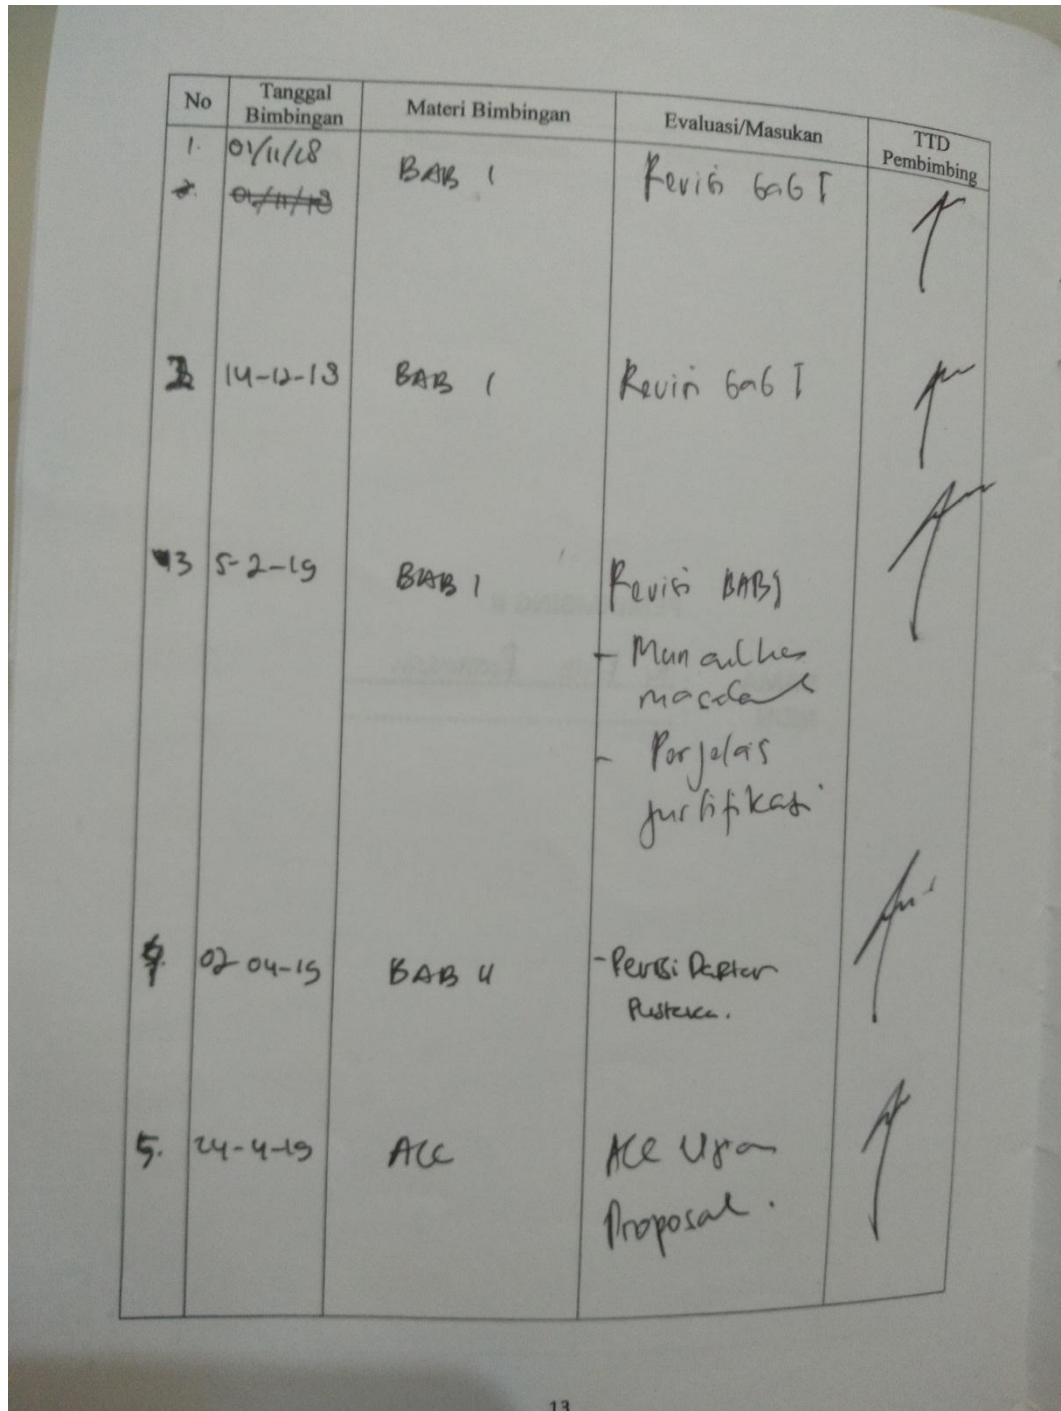 No Tanggal Bimbingan Materi Bimbingan Evaluasi/Masukan TTD Pembimbing
1. 01/11/18 BAB 1 Revisi bab I
2. 01/11/18
2 14-12-18 BAB 1 Revisi bab I
3 5-2-19 BAB 1 Revisi BAB 1
- Munculkan
masalah
- Perjelas
justifikasi
4. 02-04-19 BAB II - Revisi Daftar
Pustaka.
5. 24-4-19 ACC ACC Ujian
Proposal.
13